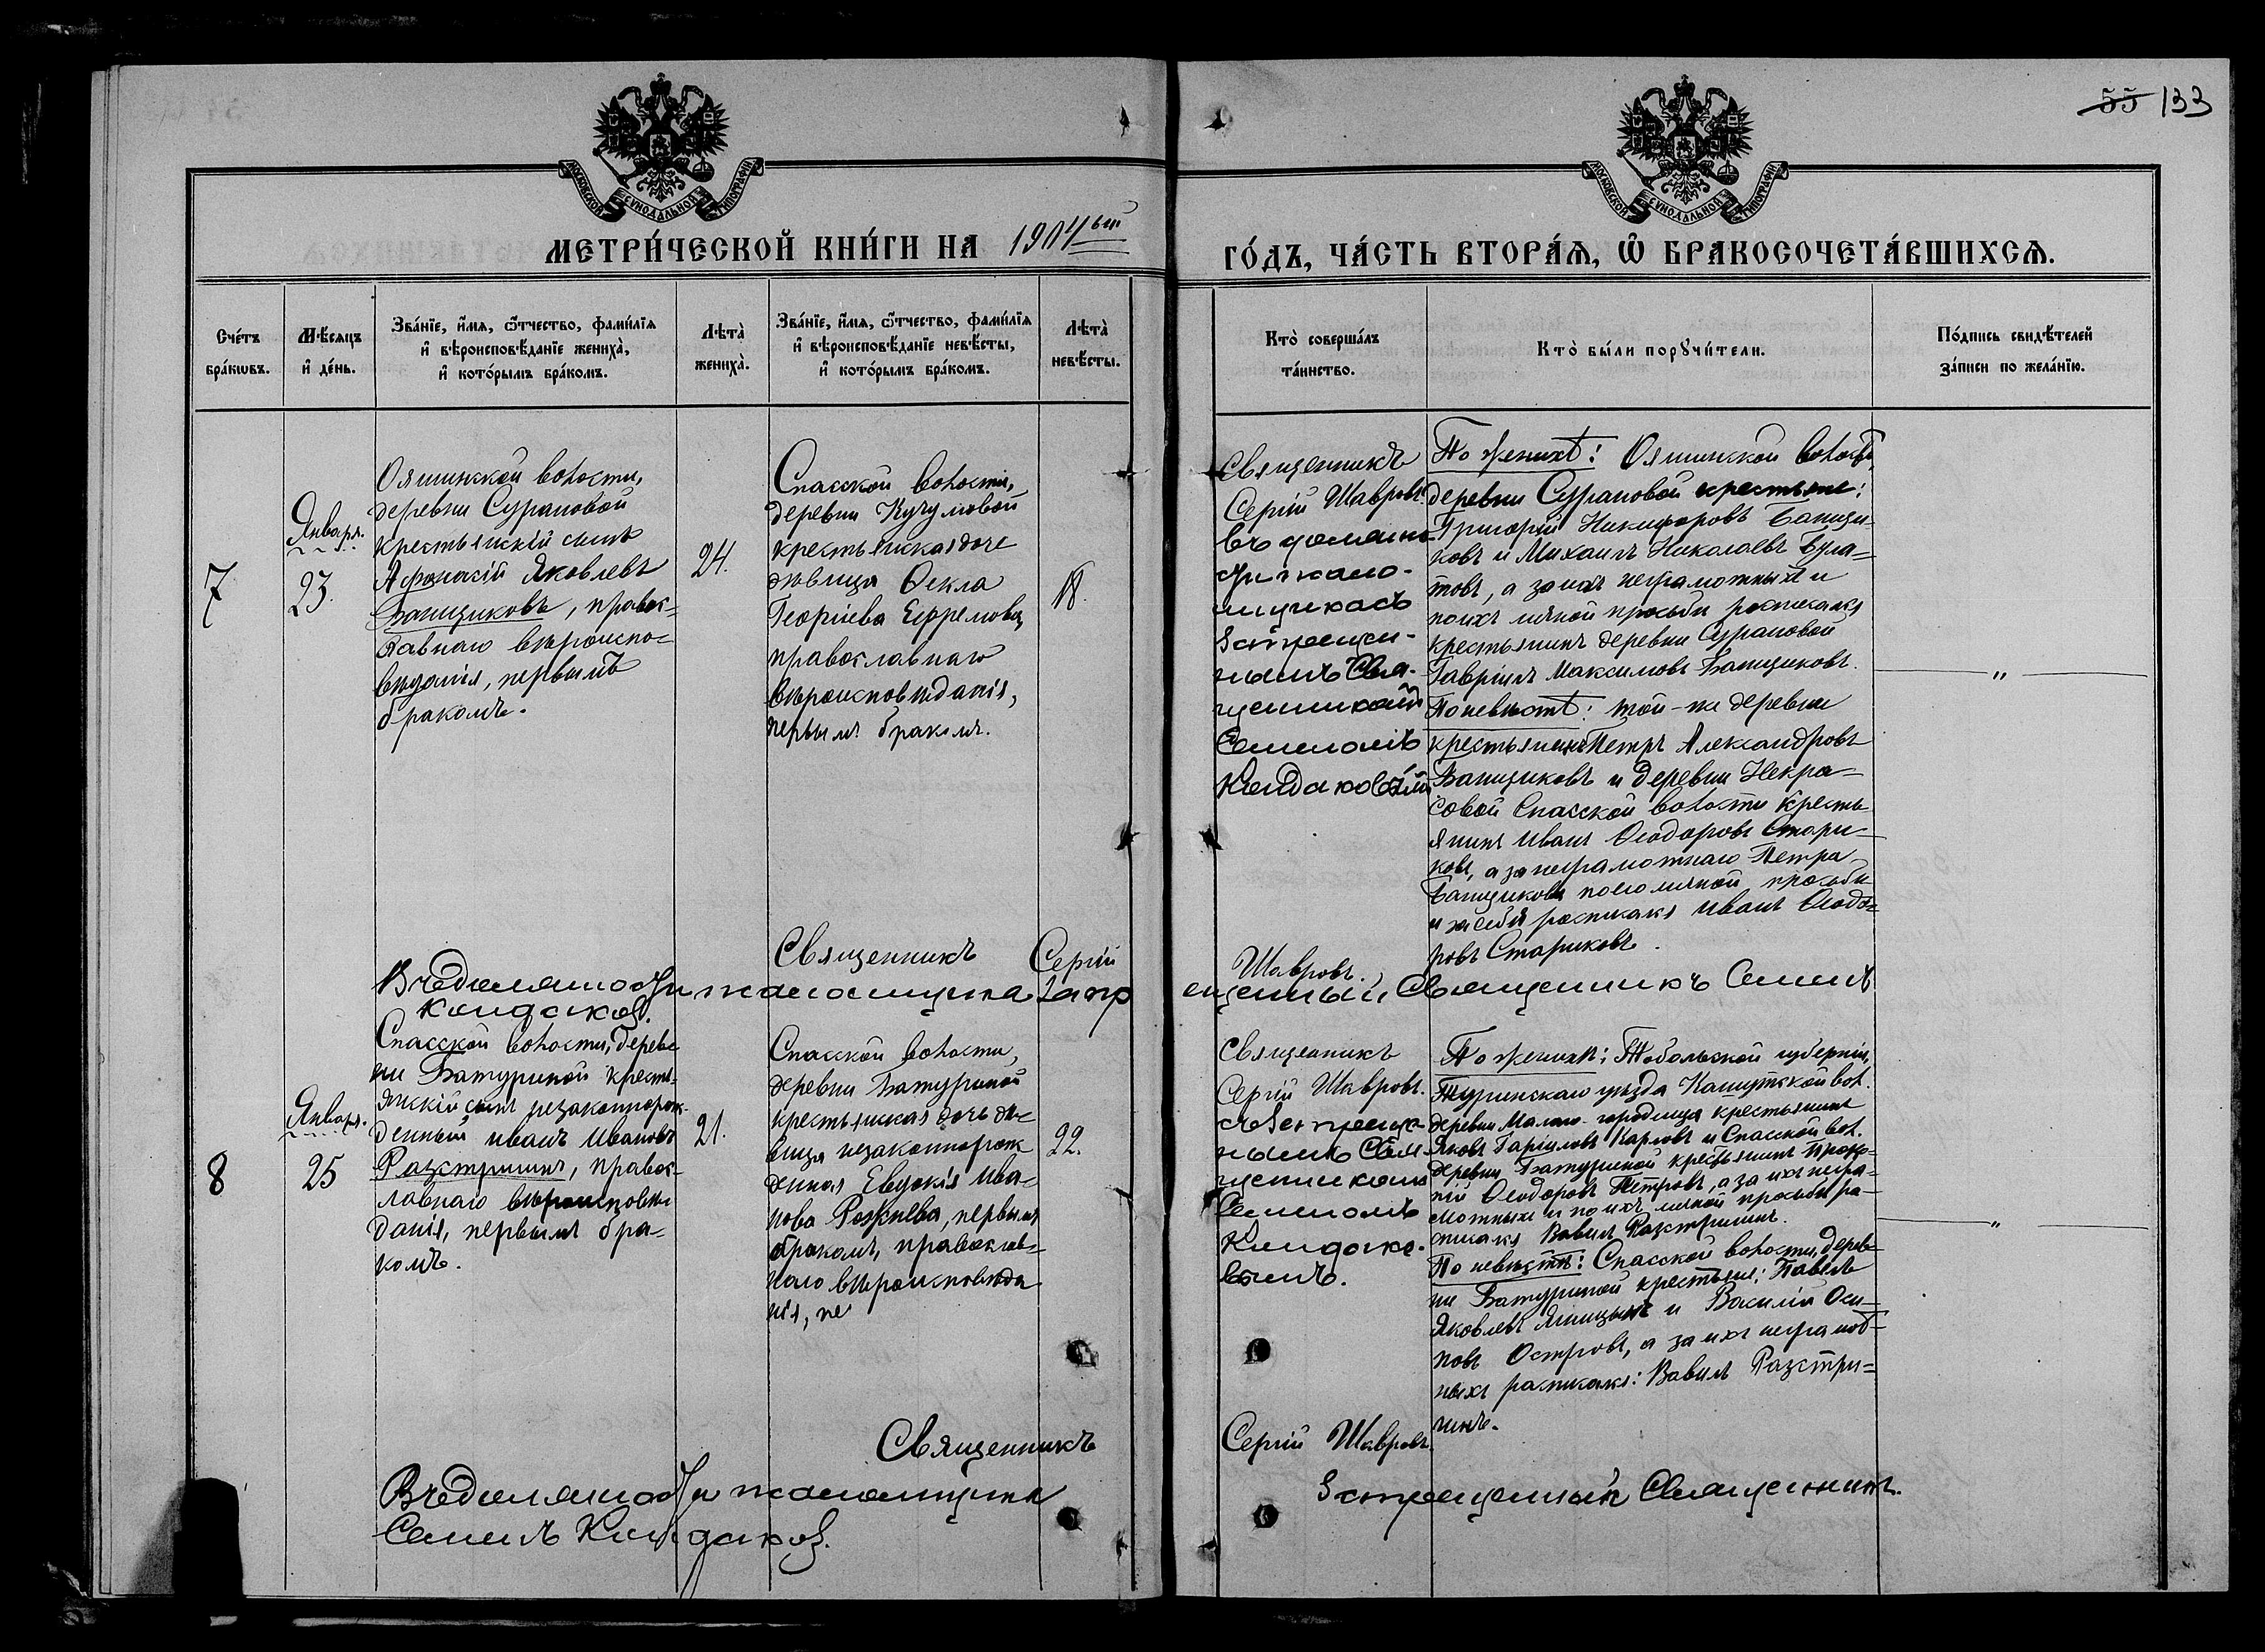 55 133
МОСКОВСКОЙ СѴНОДАЛЬНОЙ ТИПОГРАФІИ
МОСКОВСКОЙ СѴНОДАЛЬНОЙ ТИПОГРАФІИ
МЕТРИ́ЧЕСКОЙ КНИ́ГИ НА 1904ый
ГО́ДЪ, ЧА́СТЬ ВТОРА́Ѧ, Ѽ БРАКОСОЧЕТА́ВШИХСѦ.
Сче́тъ
бра́кѡвъ.
Мѣ́сѧцъ
и҆ де́нь.
Зва́нїе, и҆́мѧ, ѻ҆́тчество, фами́лїѧ
и҆ вѣроисповѣ́данїе жениха̀,
и҆ кото́рымъ бра́комъ.
Лѣта̀
жениха̀.
Зва́нїе, и҆́мѧ, ѻ҆́тчество, фами́лїѧ
и҆ вѣроисповѣ́данїе невѣ́сты,
и҆ кото́рымъ бра́комъ.
Лѣта̀
невѣ́сты.
Кто̀ соверша́лъ
та́инство.
Кто̀ бы́ли порꙋчи́тели.
По́дпись свидѣ́телей
за́писи по жела́нїю.
7
Января.
23.
Ояшинской волости,
деревни Сурановой
крестьянскій сынъ
Афонасій Яковлевъ
Банщиковъ, правос-
лавнаго вѣроиспо-
вѣданія, первымъ
бракомъ.
24.
Спасской волости,
деревни Кучумовой
крестьянская дочь
дѣвица Ѳекла
Георгіева Ефремова,
православнаго
вѣроисповѣданія,
первымъ бракомъ.
18.
Священникъ
Сергій Шавровъ
Запрещен-
нымъ Свя-
щенникомъ
Семеномъ
Кондаковымъ
По женихѣ: Ояшинской волости,
деревни Сурановой крестьяне:
Григорій Никифоровъ Банщи-
ковъ и Михаилъ Николаевъ Була-
товъ, а за ихъ неграмотныхъ и
по ихъ личной просьбѣ росписался
крестьянинъ деревни Сурановой
Гавріилъ Максимовъ Банщиковъ.
По невѣстѣ: той-же деревни
крестьянинъ Петръ Александровъ
Банщиковъ и деревни Некра-
совой Спасской волости кресть-
янинъ Иванъ Ѳеодоровъ Стари-
ковъ, а за неграмотнаго Петра
Банщикова по его личной просьбѣ
и за себя росписался Иванъ Ѳеодо-
ровъ Стариковъ.
"
Священникъ Сергій Шавровъ.
запрещенный Священникъ Семенъ
Кондаковъ.
8
Января.
25
Спасской волости, дерев-
ни Батуриной кресть-
янскій сынъ незаконнорож-
денный Иванъ Ивановъ
Разстригинъ, правос-
лавнаго вѣроисповѣ-
данія, первымъ бра-
комъ.
21.
Спасской волости,
деревни Батуриной
крестьянская дочь дѣ-
вица незаконнорож-
денная Евдокія Ива-
нова Рожнева, первымъ
бракомъ, православ-
наго вѣроисповѣда-
нія, пе
22.
Священникъ
Сергій Шавровъ.
съ Запрещен-
нымъ Свя-
щенникомъ
Семеномъ
Кондако-
вымъ.
По женихѣ: Тобольской губерніи,
Туринскаго уѣзда Кашутской вол.
деревни Малаго-городища крестьянинъ
Яковъ Гаріиловъ Карловъ и Спасской вол.
деревни Батуриной крестьянинъ Проко-
пій Ѳеодоровъ Петровъ, а за ихъ негра-
мотныхъ и по ихъ личной просьбѣ ро-
писался Вавилъ Разстригинъ.
По невѣстѣ: Спасской волости, дерев-
ни Батуриной крестьяне: Павелъ
Яковлевъ Яницынъ и Василій Оси-
повъ Островъ, а за ихъ неграмот-
ныхъ расписался: Вавилъ Разстри-
гинъ.
"
Священникъ Сергій Шавровъ.
Запрещенный Священникъ
Семенъ Кондаковъ.